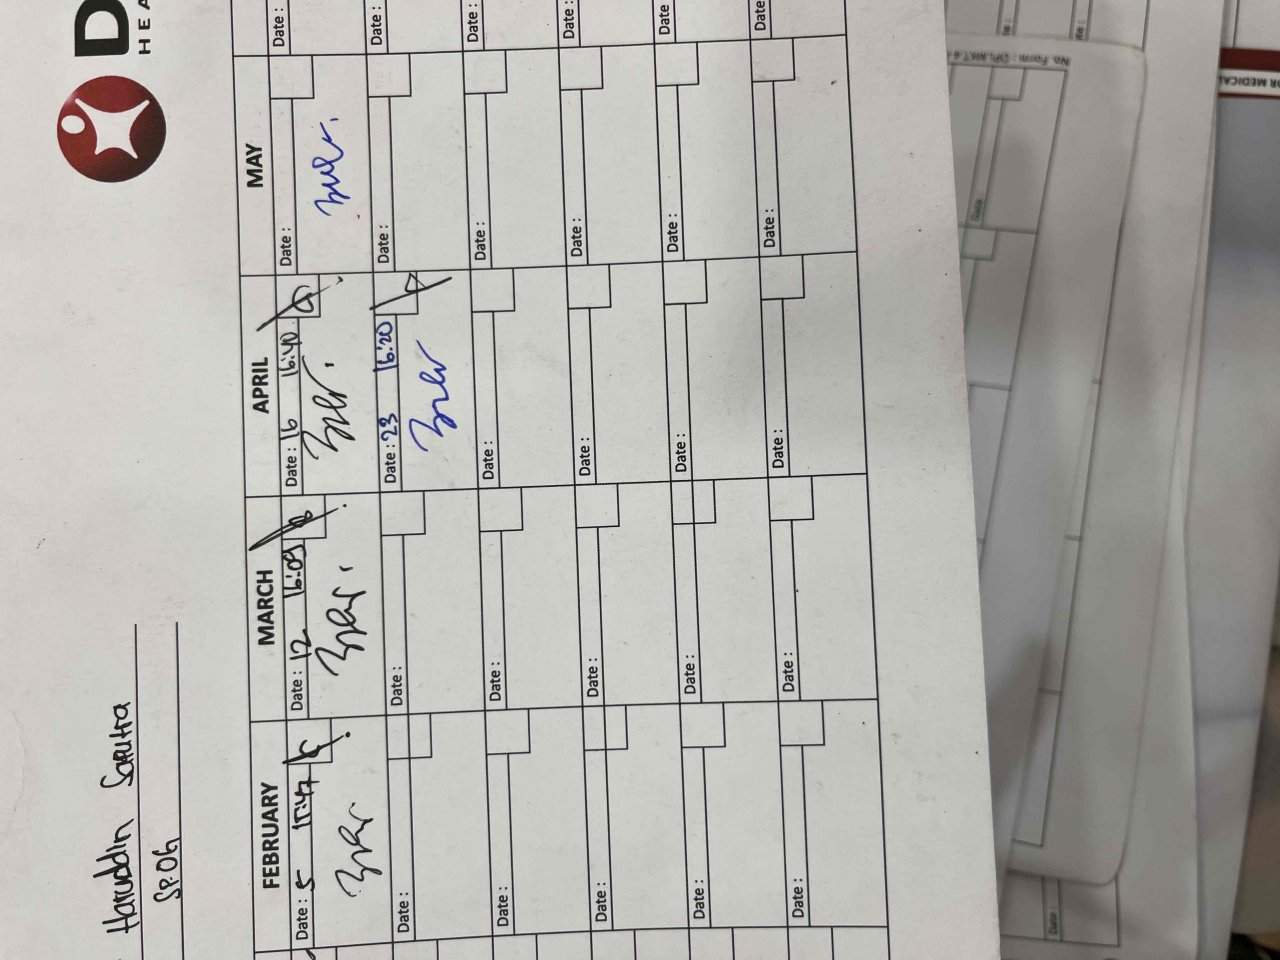 D
HEA
Haruddin Saputra
SP.OG
FEBRUARY MARCH APRIL MAY
Date : 5 15:47 Date : 12 16:09 Date : 16 16:40 Date : Date :
Date : Date : Date : 23 16:20 Date : Date :
Date : Date : Date : Date : Date :
Date : Date : Date : Date : Date :
Date : Date : Date : Date : Date :
Date : Date : Date : Date : Date :
No. Form : DPI.MKT.4
Date
Date :
OR MEDICAL